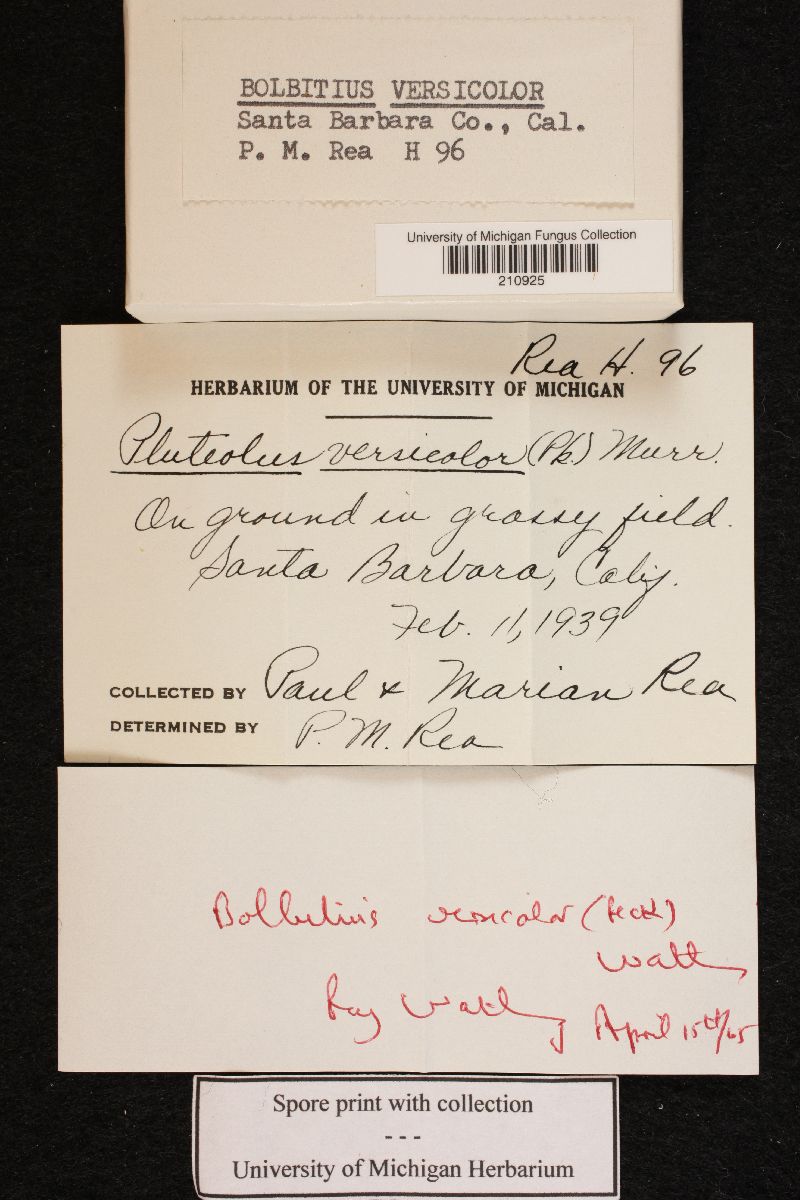 BOLBITIUS VERSICOLOR
Santa Barbara Co., Cal.
P. M. Rea H 96
University of Michigan Fungus Collection
210925
Rea H. 96
HERBARIUM OF THE UNIVERSITY OF MICHIGAN
Pluteolus versicolor (Pk.) Murr.
On ground in grassy field.
Santa Barbara, Calif.
Feb. 11, 1939
COLLECTED BY Paul & Marian Rea
DETERMINED BY P. M. Rea
Bolbitius versicolor (Peck)
Watling
Roy Watling April 15th/65
Spore print with collection
---
University of Michigan Herbarium